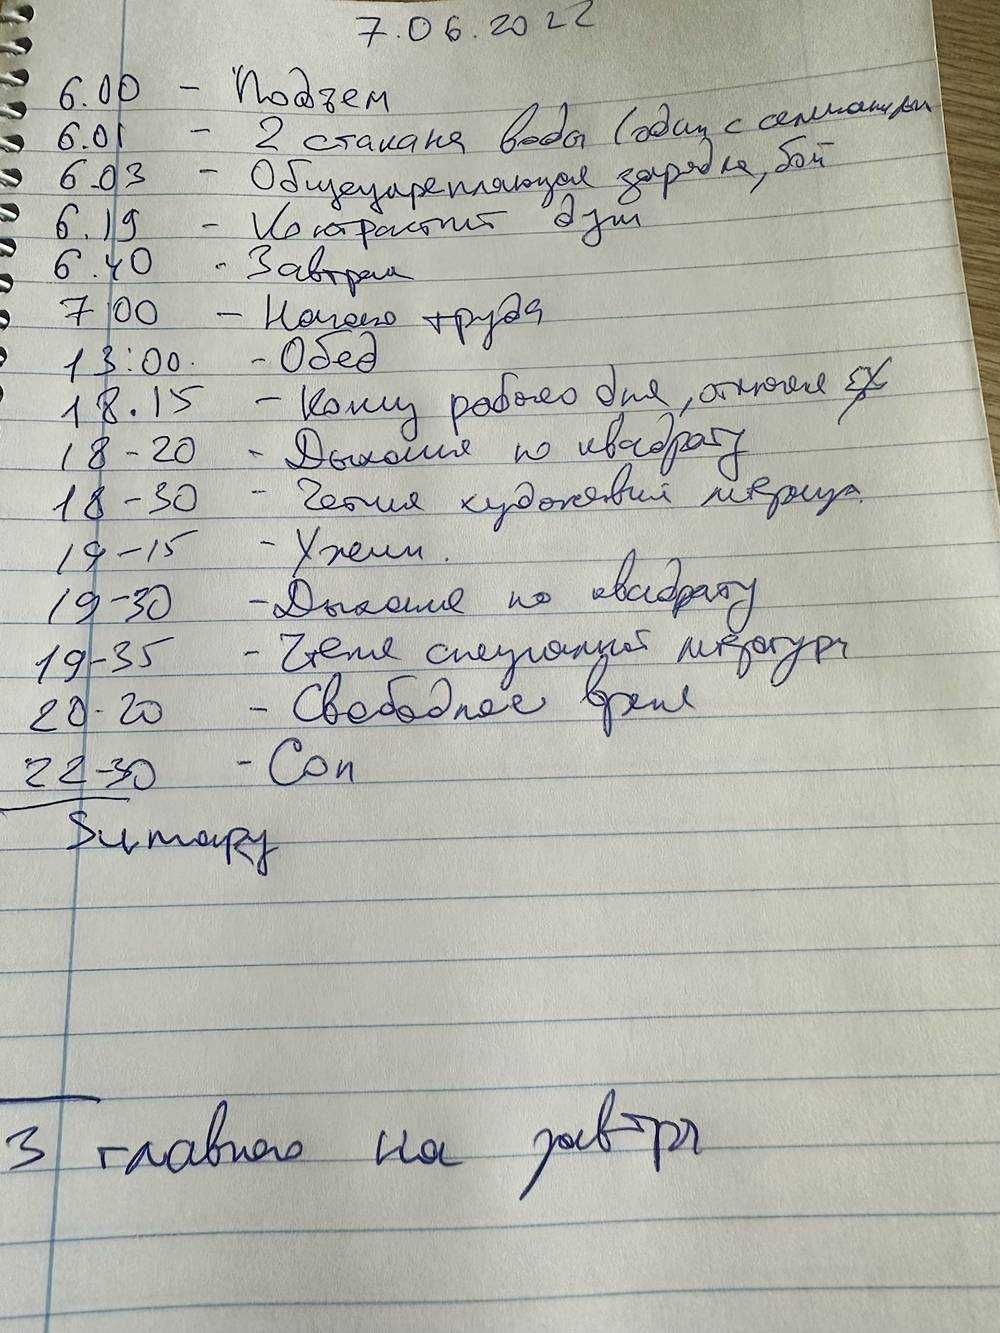 7.06.2022
6.00 - Подъем
6.01 - 2 стакана воды (один с
6.03 - Общеукрепляющая зарядка, бой
6.19 - Контрастный душ
6.40 - Завтрак
7 00 - Начало труда
13:00. - Обед
18.15 - Конец рабочего дня, отключаем
18-20 - Дыхание по квадрату
18-30 - Чтение художественной литературы
19-15 - Ужин.
19-30 - Дыхание по квадрату
19-35 - Чтение специальной литературы
20-20 - Свободное время
22-30 - Сон
Summary
3 главного на завтра